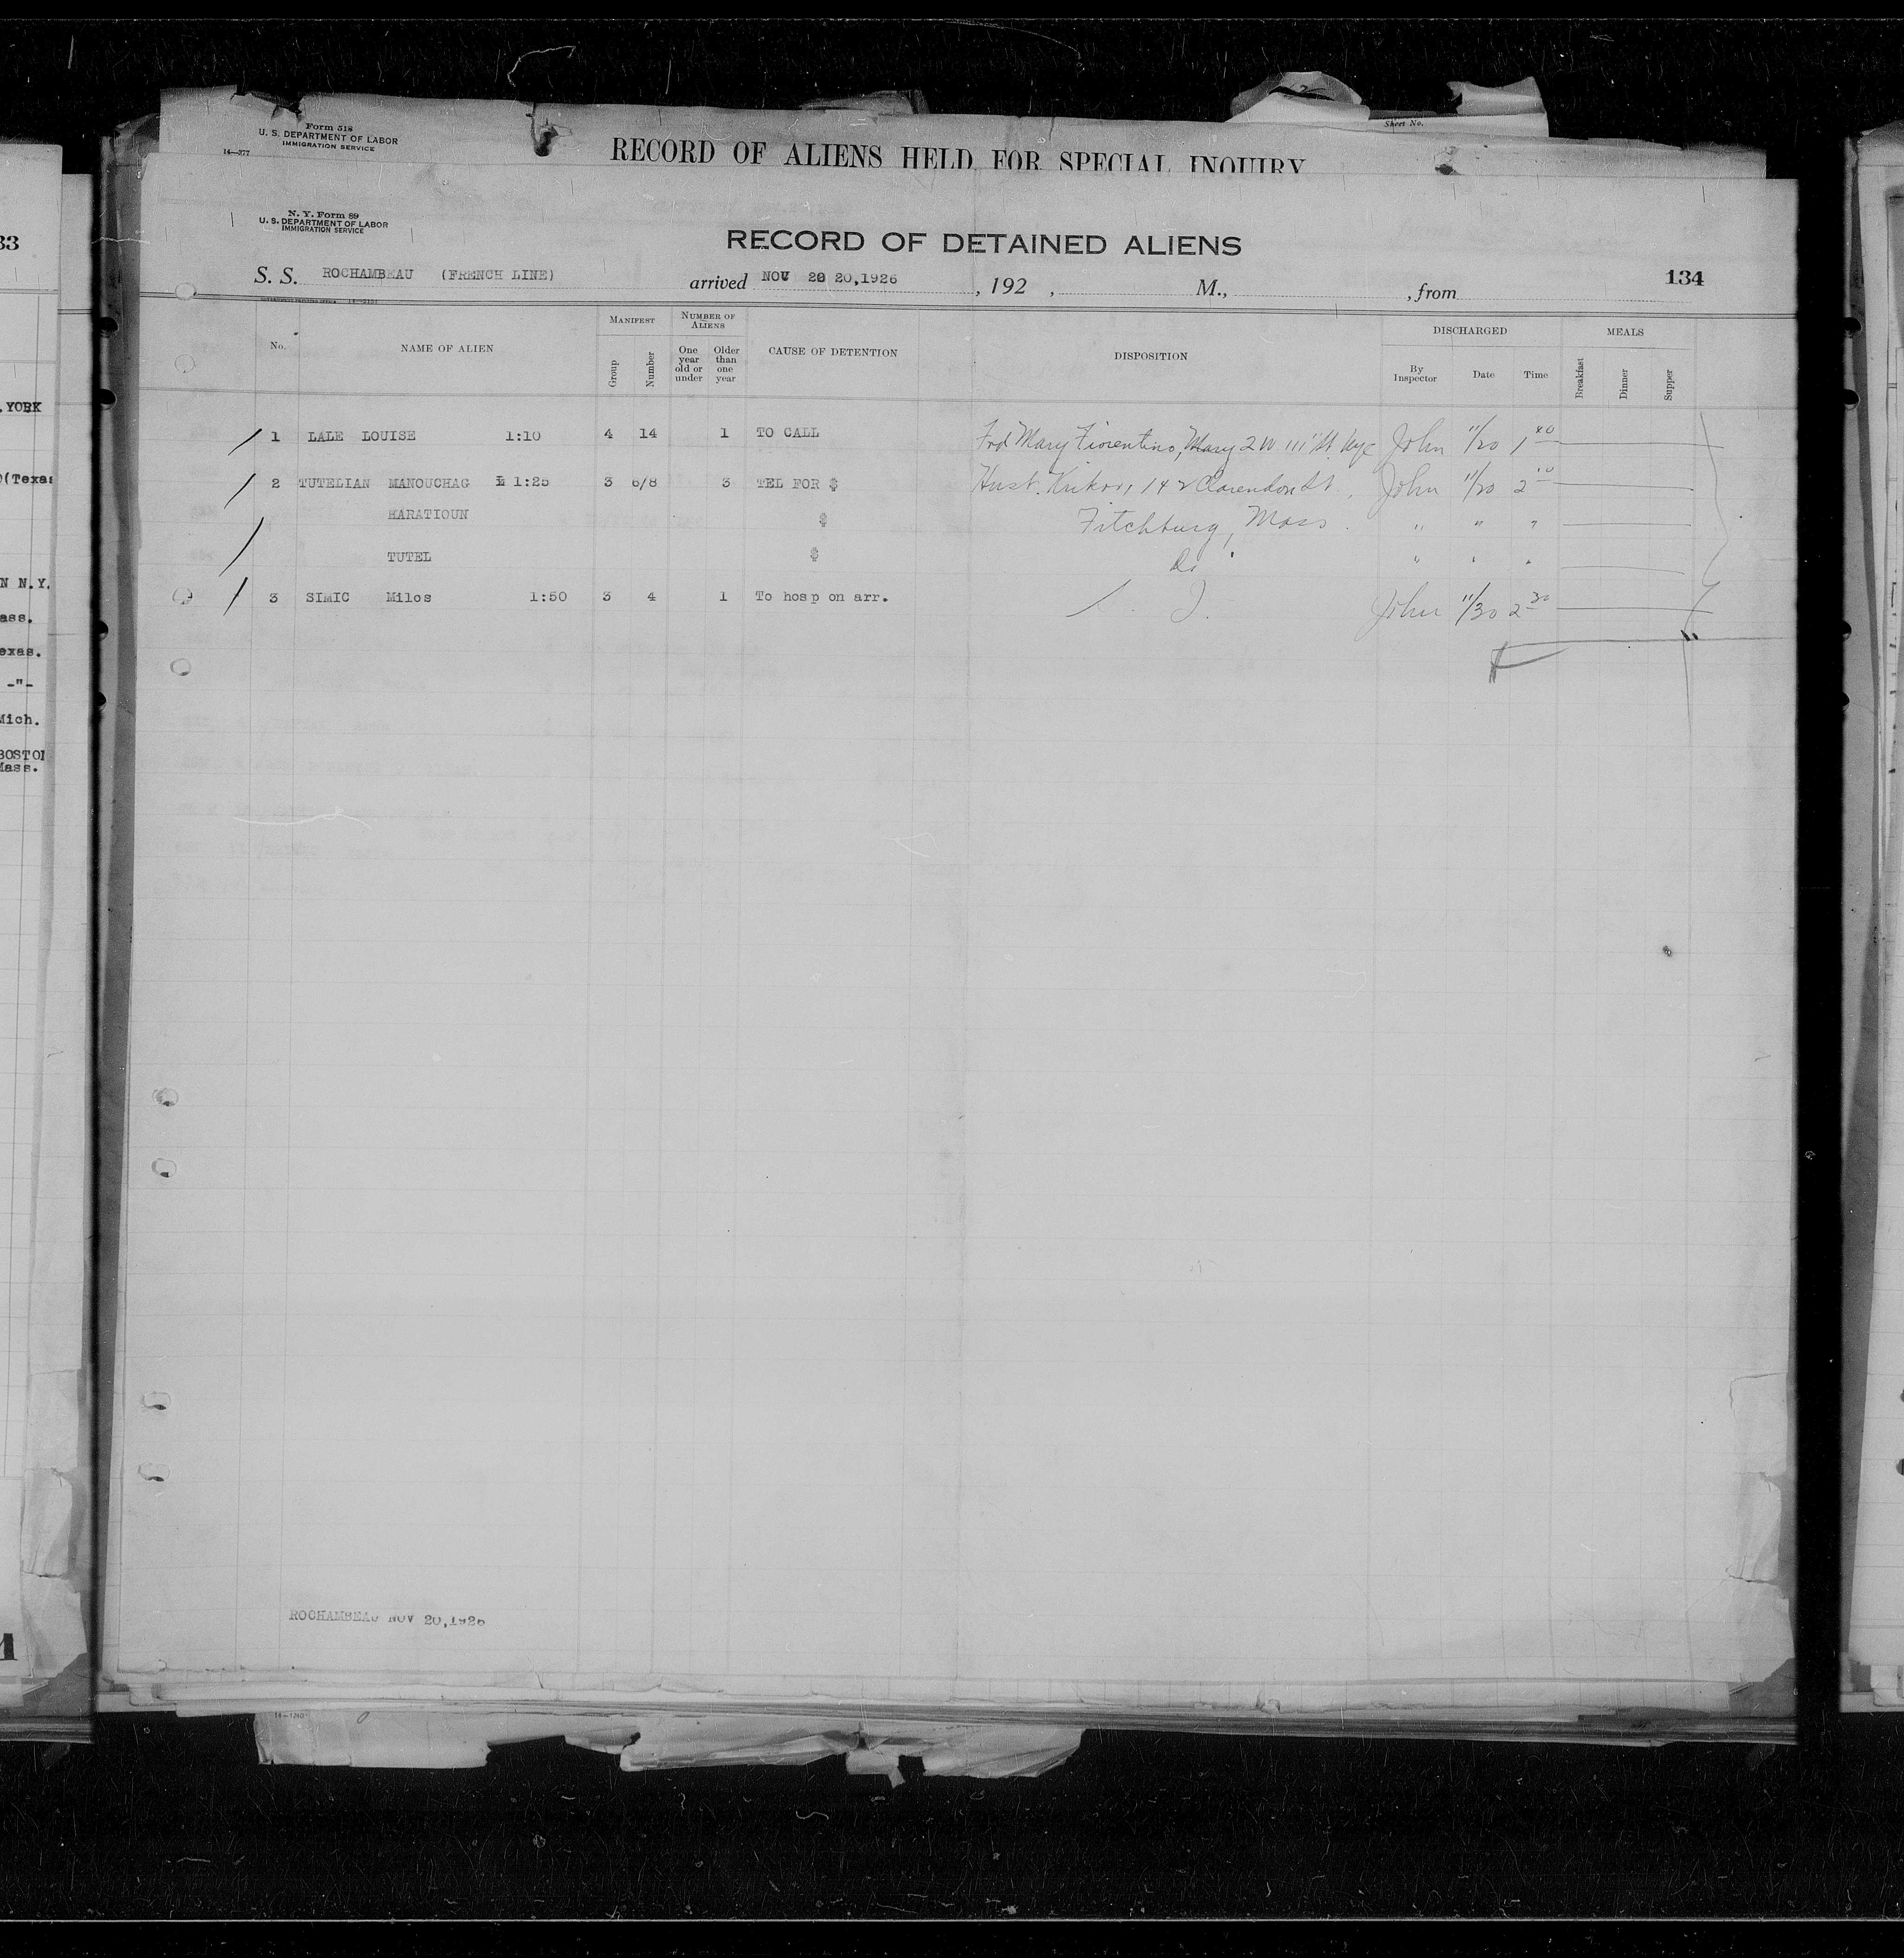 Form 518
U. S. DEPARTMENT OF LABOR
IMMIGRATION SERVICE
14—377
Sheet No.
RECORD OF ALIENS HELD FOR SPECIAL INQUIRY
N. Y. Form 89
U. S. DEPARTMENT OF LABOR
IMMIGRATION SERVICE
RECORD OF DETAINED ALIENS
S. S. ROCHAMBEAU (FRENCH LINE) arrived NOV 20 20,1926 , 192 , M., , from 134
No. NAME OF ALIEN MANIFEST Group Number NUMBER OF ALIENS One year old or under Older than one year CAUSE OF DETENTION DISPOSITION DISCHARGED By Inspector Date Time MEALS Breakfast Dinner Supper
1 LALE LOUISE 1:10 4 14 1 TO CALL Frd Mary Fiorentino, Mary 2 W 111" St. Nyc John 11/20 1 40
2 TUTELIAN MANOUCHAG 1:25 3 6/8 3 TEL FOR $ Husb. Krikor, 142 Clarendon St., John 11/20 2 10
HARATIOUN $ Fitchburg, Mass. " " "
TUTEL $ Do " " " "
3 SIMIC Milos 1:50 3 4 1 To hosp on arr. John 11/30 2 30
ROCHAMBEAU NOV 20,1926
14—1240
33
.YORK
)(Texas
N N.Y.
ass.
exas.
-"-
Mich.
BOSTON
Mass.